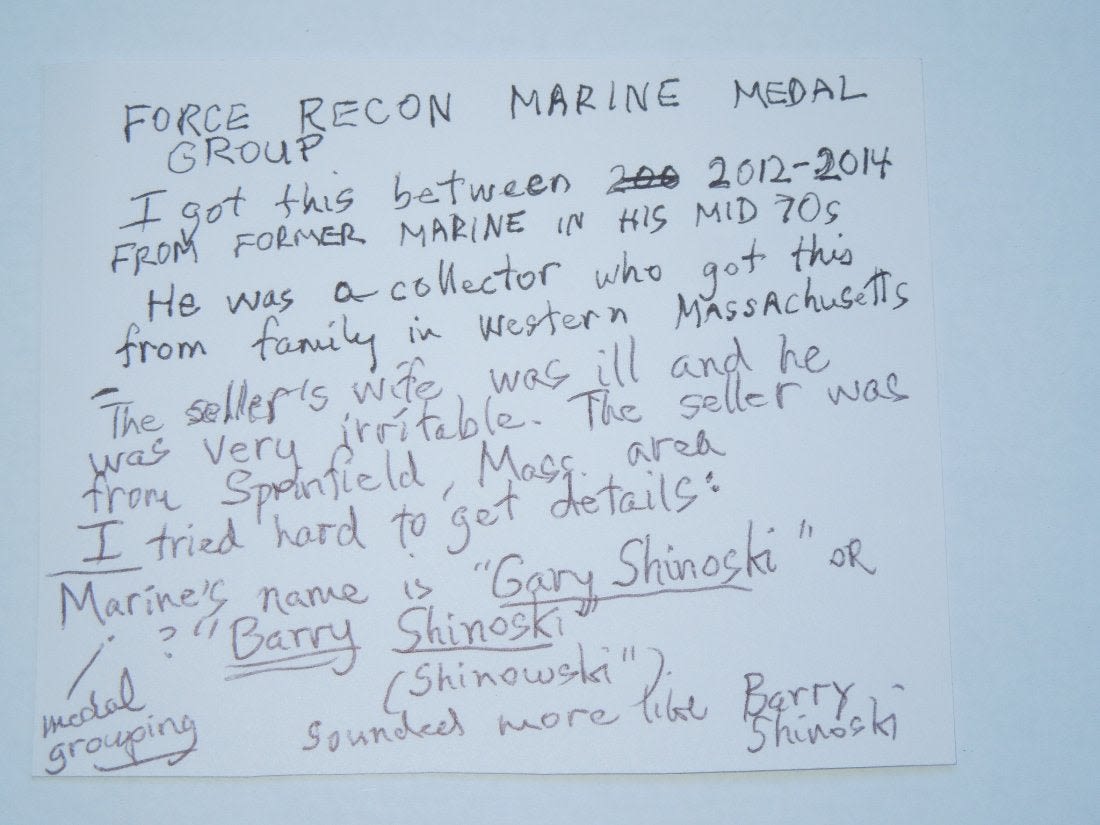 FORCE RECON MARINE MEDAL
GROUP
I got this between 200 2012-2014
FROM FORMER MARINE IN HIS MID 70s
He was a collector who got this
from family in western MASSAchusetts
The seller's wife was ill and he
was very irritable. The seller was
from Sprinfield, Mass. area
I tried hard to get details:
Marine's name is "Gary Shinoski" OR
? "Barry Shinoski"
(Shinowski")
medal
grouping
sounded more like Barry
Shinoski